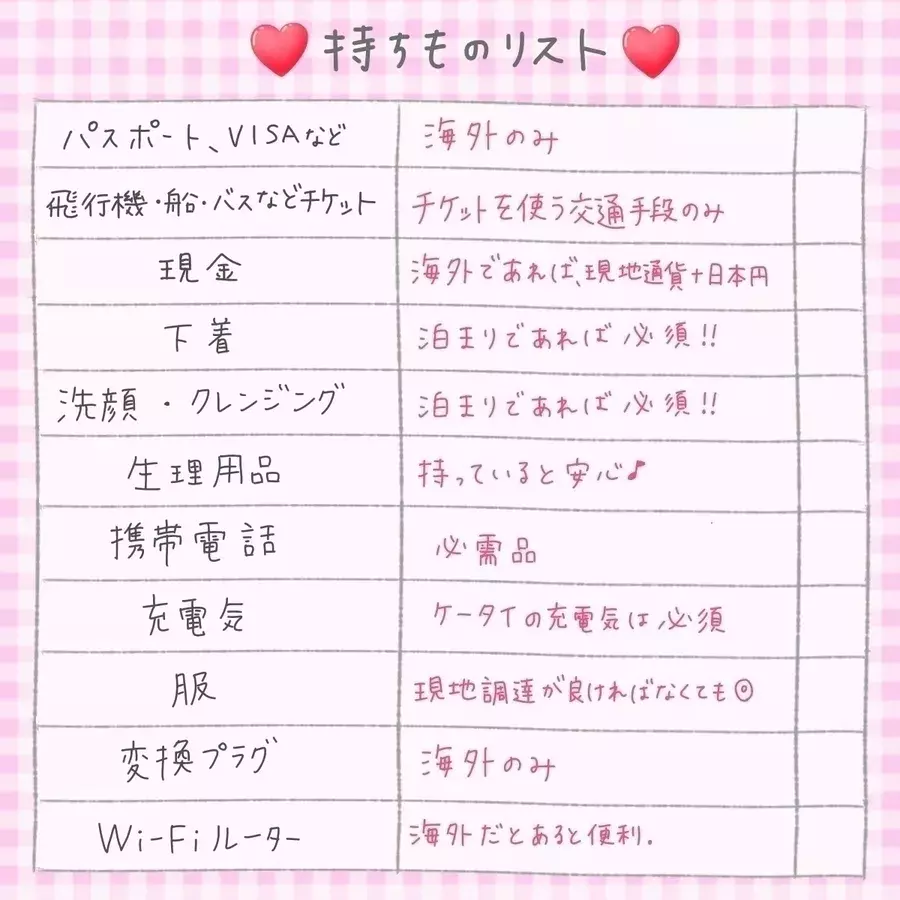 持ちものリスト
パスポート、VISAなど 海外のみ
飛行機・船・バスなどチケット チケットを使う交通手段のみ
現金 海外であれば、現地通貨+日本円
下着 泊まりであれば必須!!
洗顔・クレンジング 泊まりであれば必須!!
生理用品 持っていると安心♪
携帯電話 必需品
充電気 ケータイの充電気は必須
服 現地調達が良ければなくても◎
変換プラグ 海外のみ
Wi-Fiルーター 海外だとあると便利.